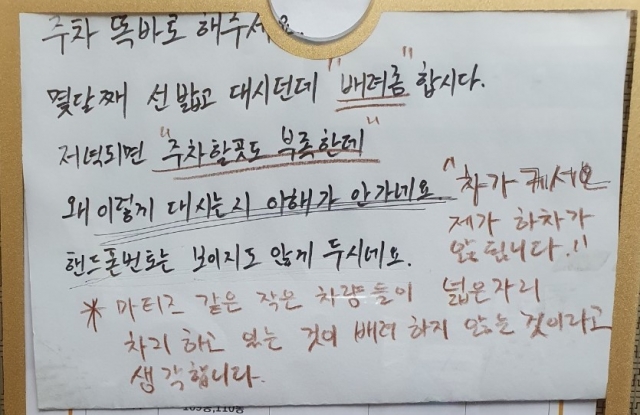 주차 똑바로 해주세요.
몇달째 선 밟고 대시던데 "배려좀" 합시다.
저녁되면 "주차할곳도 부족한데"
왜 이렇게 대시는지 이해가 안가네요.
핸드폰번호는 보이지도 않게 두시네요.
"차가 커서요
제가 하차가
안됩니다.!!
* 마티즈 같은 작은 차량들이 넓은자리
차지 하고 있는 것이 배려 하지 않는 것이라고
생각합니다.
109동,110동